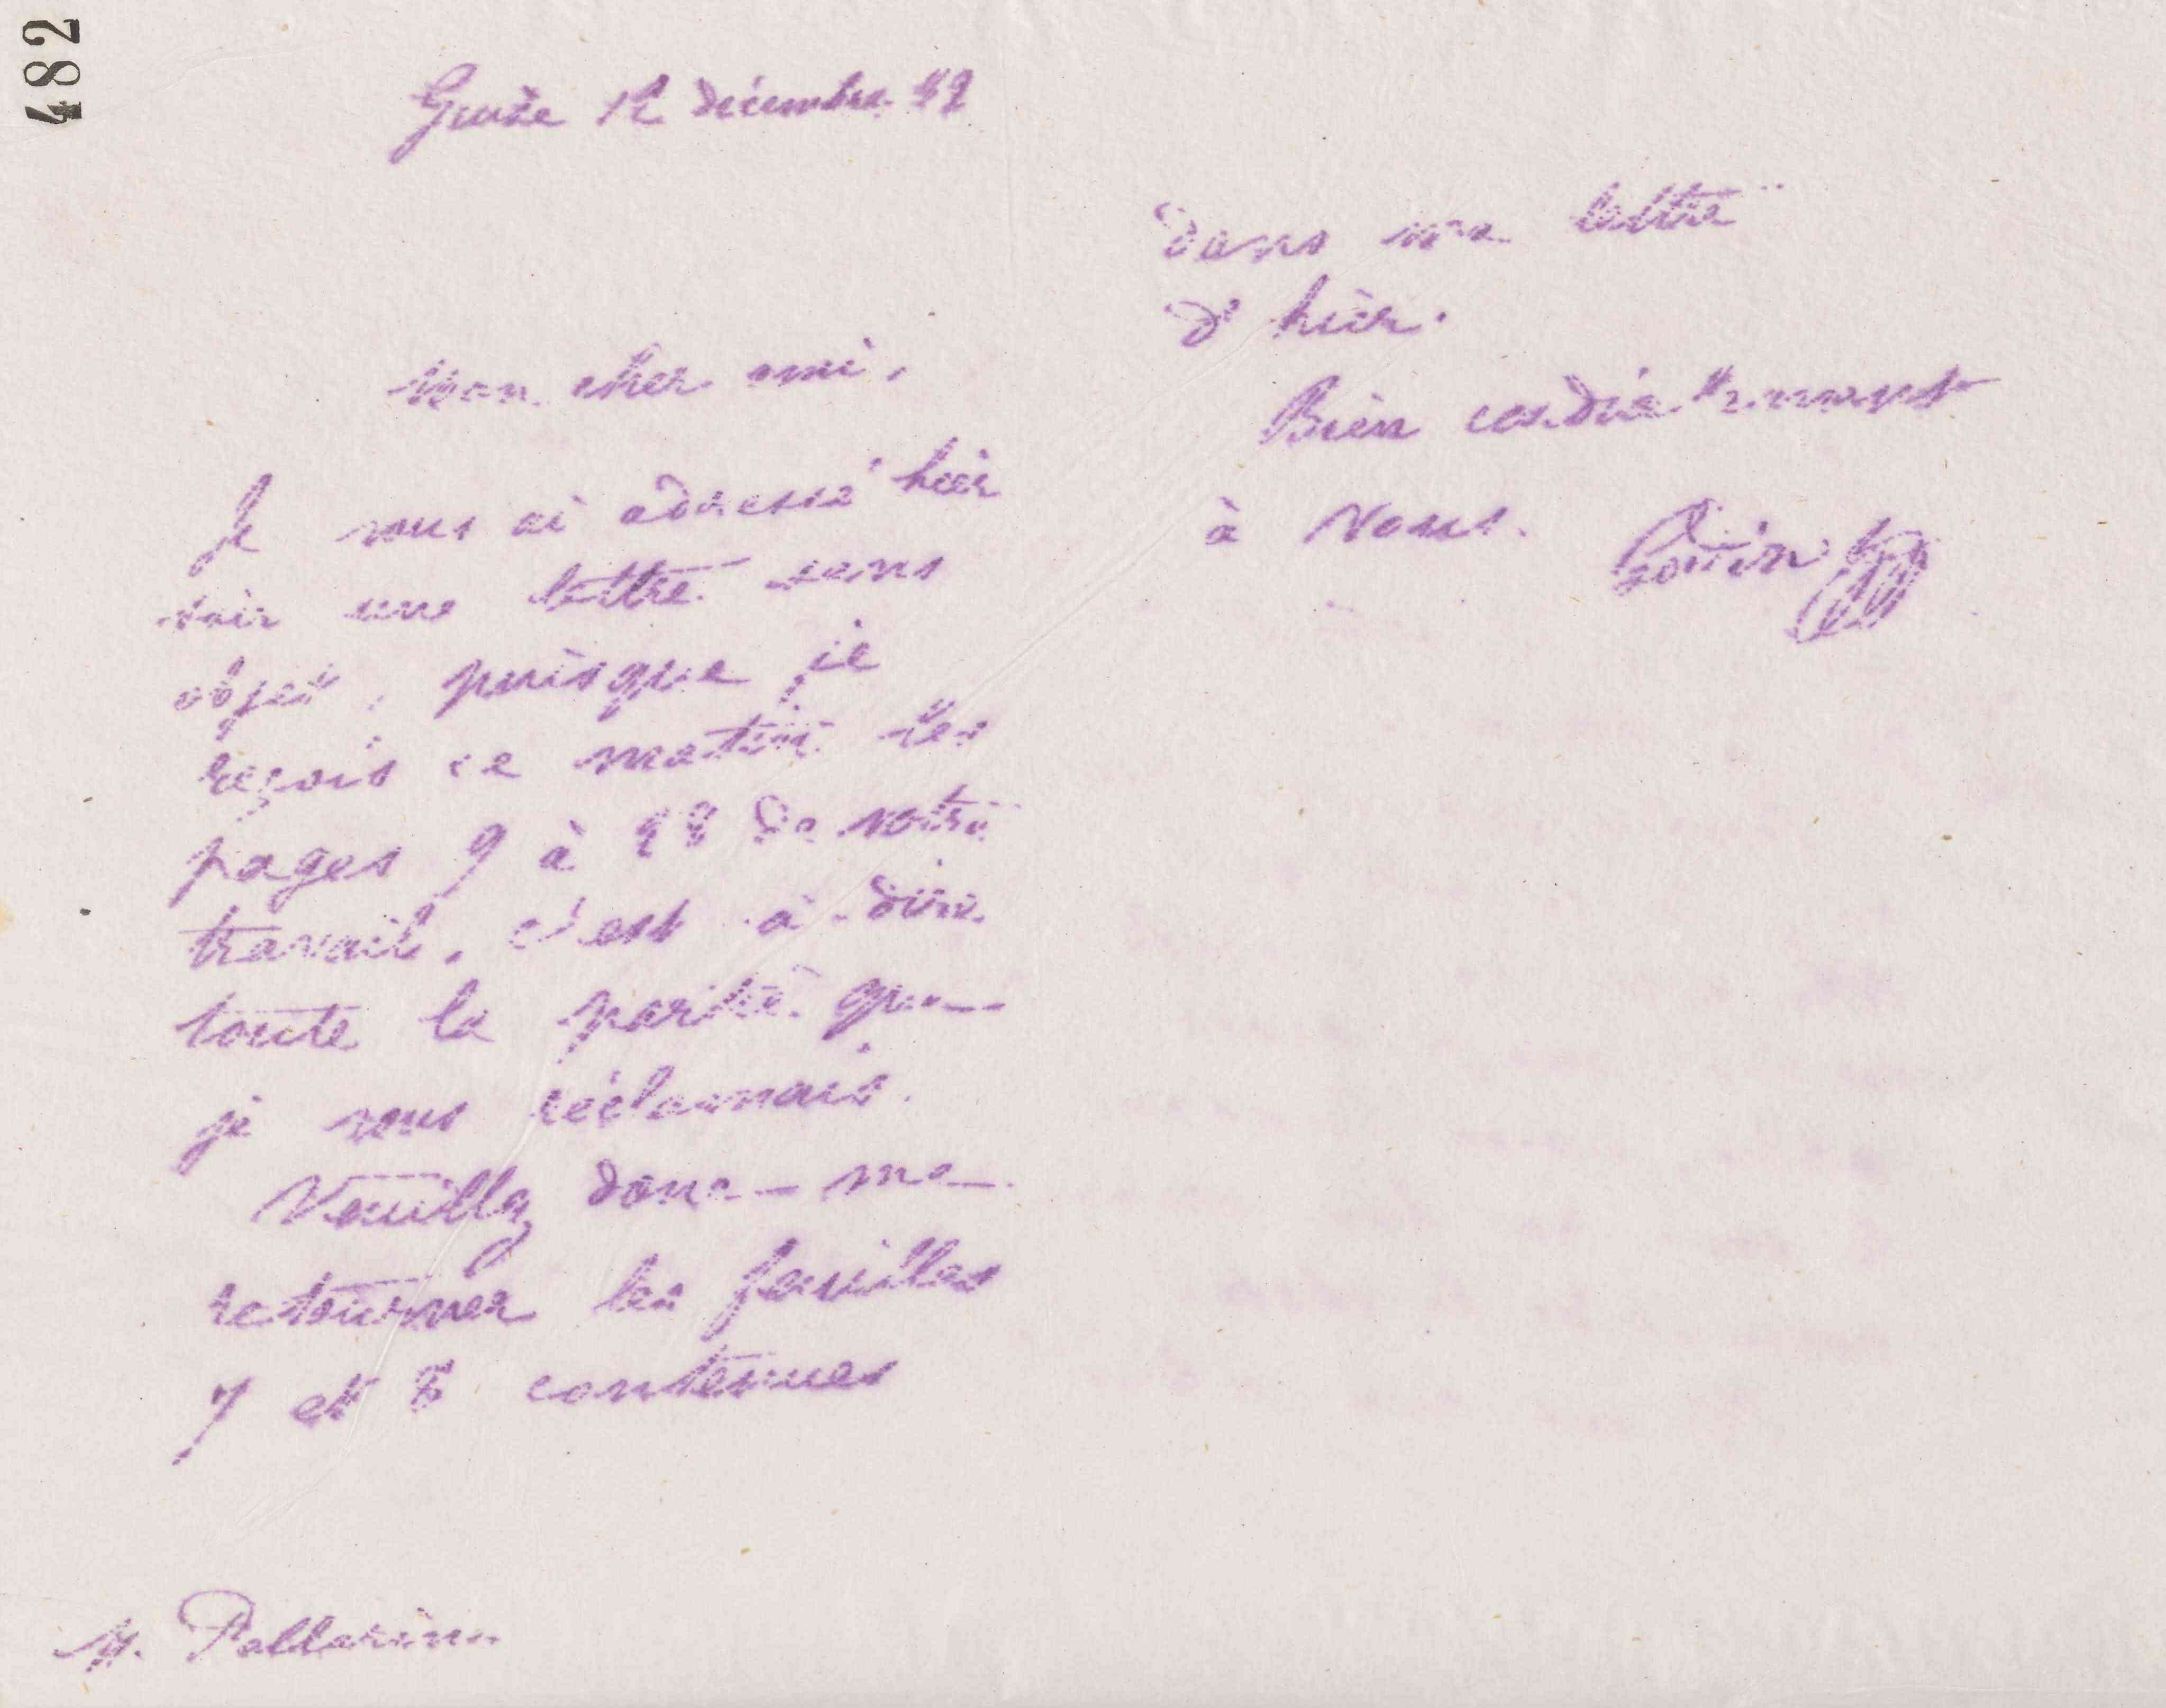 482
Guise 12 décembre
Mon cher ami,
Je vous ai adressé hier
soir une lettre sans
objet, puisque je
reçois ce matin les
pages 9 à 28 de votre
travail, c'est-à-dire
toute la partie que
je vous réclamais.
Veuillez donc me
retourner les feuilles
7 et 8 contenues
M. Pallarin
dans ma lettre
d'hier.
Bien cordialement
à vous.
Godin